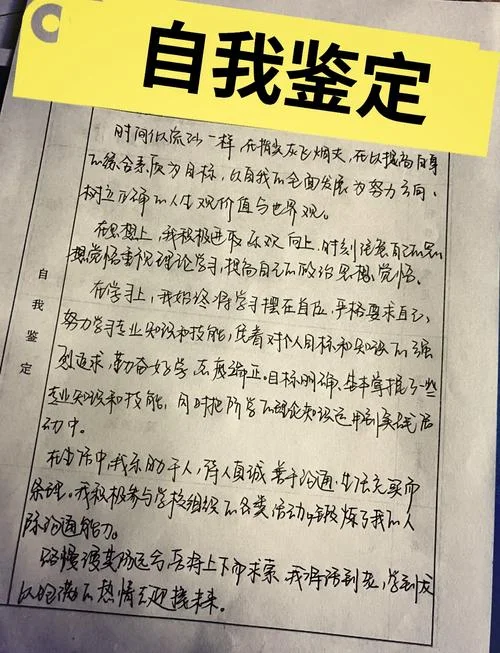 自我鉴定
自我鉴定
时间似流沙一样,在指尖灰飞烟灭,在以提高自身
的综合素质为目标,以自我的全面发展为努力方向,
树立正确的人生观价值与世界观。
在思想上,我积极进取乐观向上,时刻注意自己的思
想觉悟重视理论学习,提高自己的政治思想觉悟。
在学习上,我始终将学习摆在首位,严格要求自己,
努力学习专业知识和技能,凭着对个人目标和知识的强
烈追求,勤奋好学态度端正。目标明确,基本掌握了一些
专业知识和技能,同时把所学的理论知识运用到实践活
动中。
在生活中,我乐助于人,待人真诚善于沟通,生活充实而
条理。我积极参与学校组织的各类活动中锻炼了我的人
际沟通能力。
路慢漫其修远兮,吾将上下而求索。我将活到老,学到老
以饱满的热情去迎接未来。